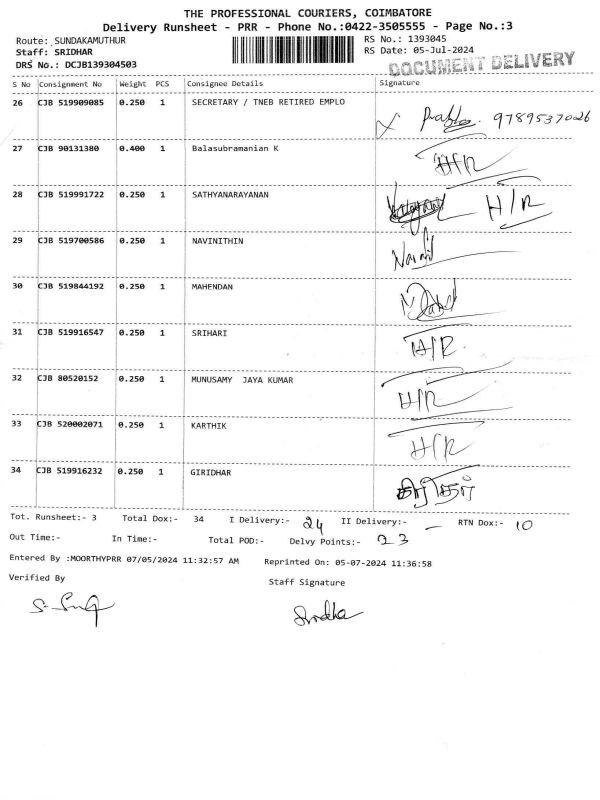 THE PROFESSIONAL COURIERS, COIMBATORE
Delivery Runsheet - PRR - Phone No.:0422-3505555 - Page No.:3
Route: SUNDAKAMUTHUR RS No.: 1393045
Staff: SRIDHAR RS Date: 05-Jul-2024
DRS No.: DCJB139304503 DOCUMENT DELIVERY
S No Consignment No Weight PCS Consignee Details Signature
26 CJB 519909085 0.250 1 SECRETARY / TNEB RETIRED EMPLO 9789537026
27 CJB 90131380 0.400 1 Balasubramanian K H/R
28 CJB 519991722 0.250 1 SATHYANARAYANAN H/R
29 CJB 519700586 0.250 1 NAVINITHIN
30 CJB 519844192 0.250 1 MAHENDAN
31 CJB 519916547 0.250 1 SRIHARI H/R
32 CJB 80520152 0.250 1 MUNUSAMY JAYA KUMAR H/R
33 CJB 520002071 0.250 1 KARTHIK H/R
34 CJB 519916232 0.250 1 GIRIDHAR கிரிதர்
Tot. Runsheet:- 3 Total Dox:- 34 I Delivery:- 24 II Delivery:- – RTN Dox:- 10
Out Time:- In Time:- Total POD:- Delvy Points:- 23
Entered By :MOORTHYPRR 07/05/2024 11:32:57 AM Reprinted On: 05-07-2024 11:36:58
Verified By Staff Signature
Sridha